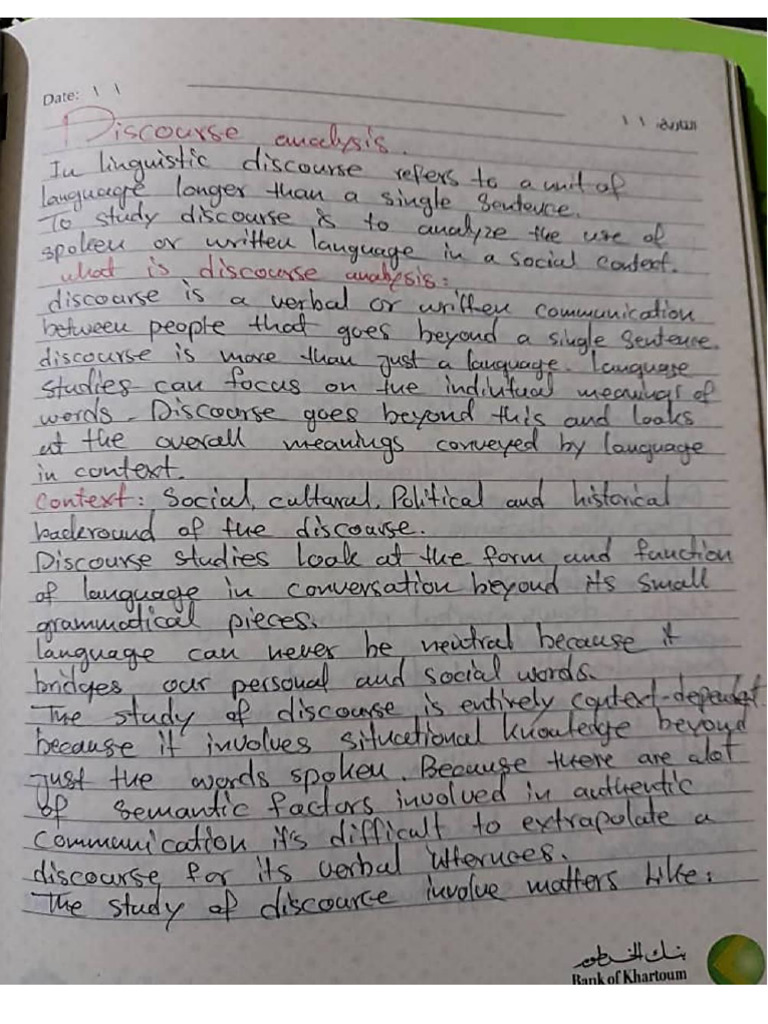 Date: \ \
التاريخ: \ \
Discourse analysis.
In linguistic discourse refers to a unit of
language longer than a single sentence.
To study discourse is to analyze the use of
spoken or written language in a social context.
what is discourse analysis:
discourse is a verbal or written communication
between people that goes beyond a single sentence.
discourse is more than just a language. language
studies can focus on the indivitual meanings of
words. Discourse goes beyond this and looks
at the overall meanings conveyed by language
in context.
Context: Social, cultural, Political and historical
backeround of the discourse.
Discourse studies look at the form and function
of language in conversation beyond its small
grammatical pieces.
language can never be neutral because it
bridges our personal and social words.
The study of discourse is entirely context-dependet
because it involves situational knowledge beyond
just the words spoken. Because there are alot
of semantic factors involved in authentic
communication it's difficult to extrapolate a
discourse for its verbal utternces.
The study of discource involve matters like:
بنك الخرطوم
Bank of Khartoum